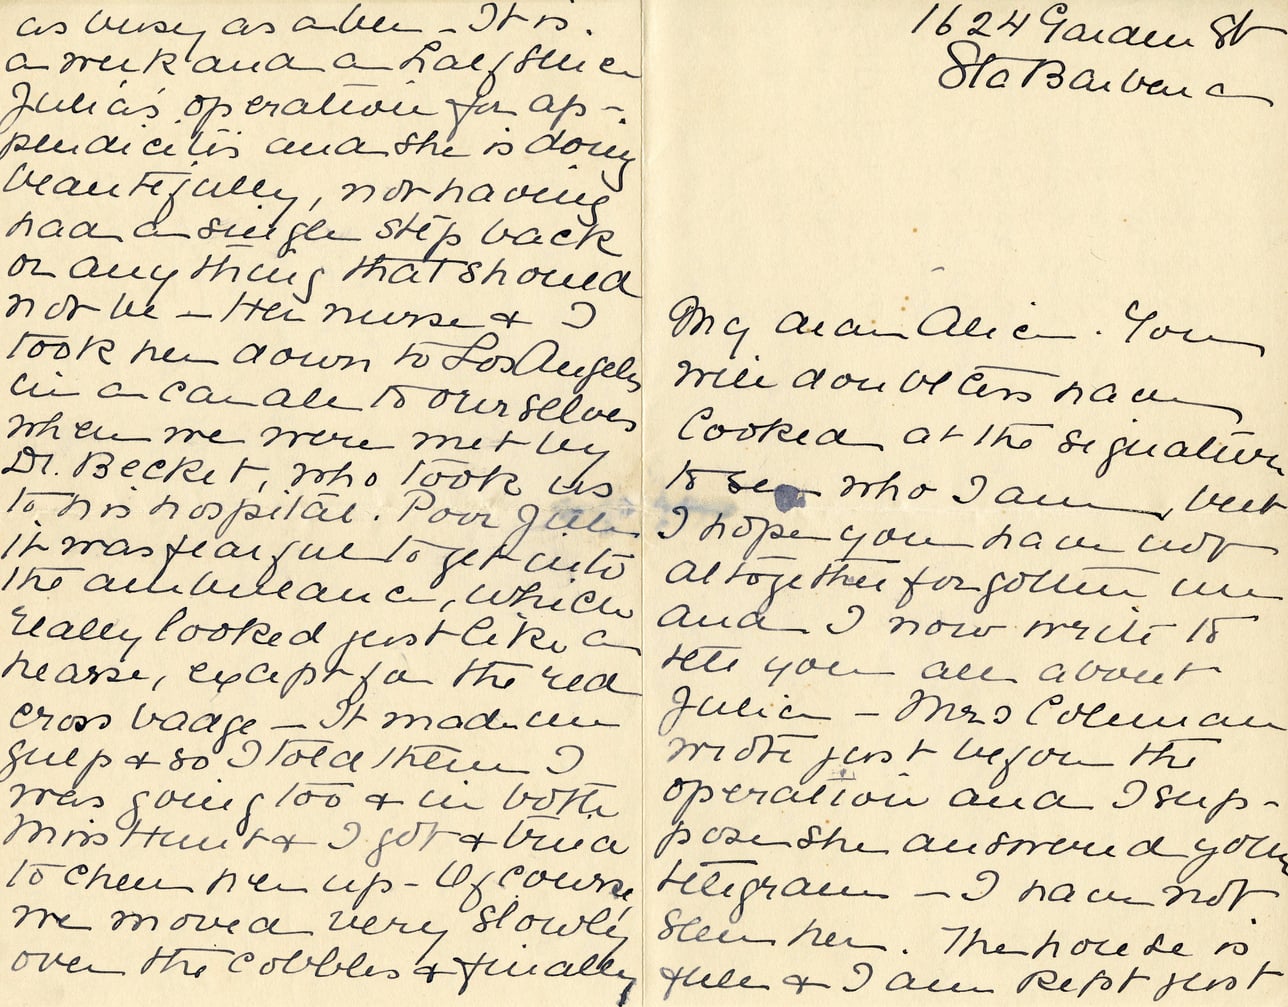 1624 Garden St
Sta Barbara
My dear Alice. You
will doubtless have
looked at the signature
to see who I am, but
I hope you have not
altogether forgotten me
and I now write to
tell you all about
Julia - Mrs Coleman
wrote just before the
operation and I sup-
pose she answered your
telegram - I have not
seen her. The house is
full & I am kept just
as busy as a bee - It is
a week and a half since
Julia's operation for ap-
pendicitis and she is doing
beautifully, not having
had a single step back
or anything that should
not be - Her nurse & I
took her down to Los Angeles
in a car all to ourselves
when we were met by
Dr. Becket, who took us
to his hospital. Poor Julia
it was fearful to get into
the ambulance, which
really looked just like a
hearse, except for the red
cross badge - It made me
gulp & so I told them I
was going too & in both
Miss Hunt & I got & tried
to cheer her up - Of course
we moved very slowly
over the cobbles & finally